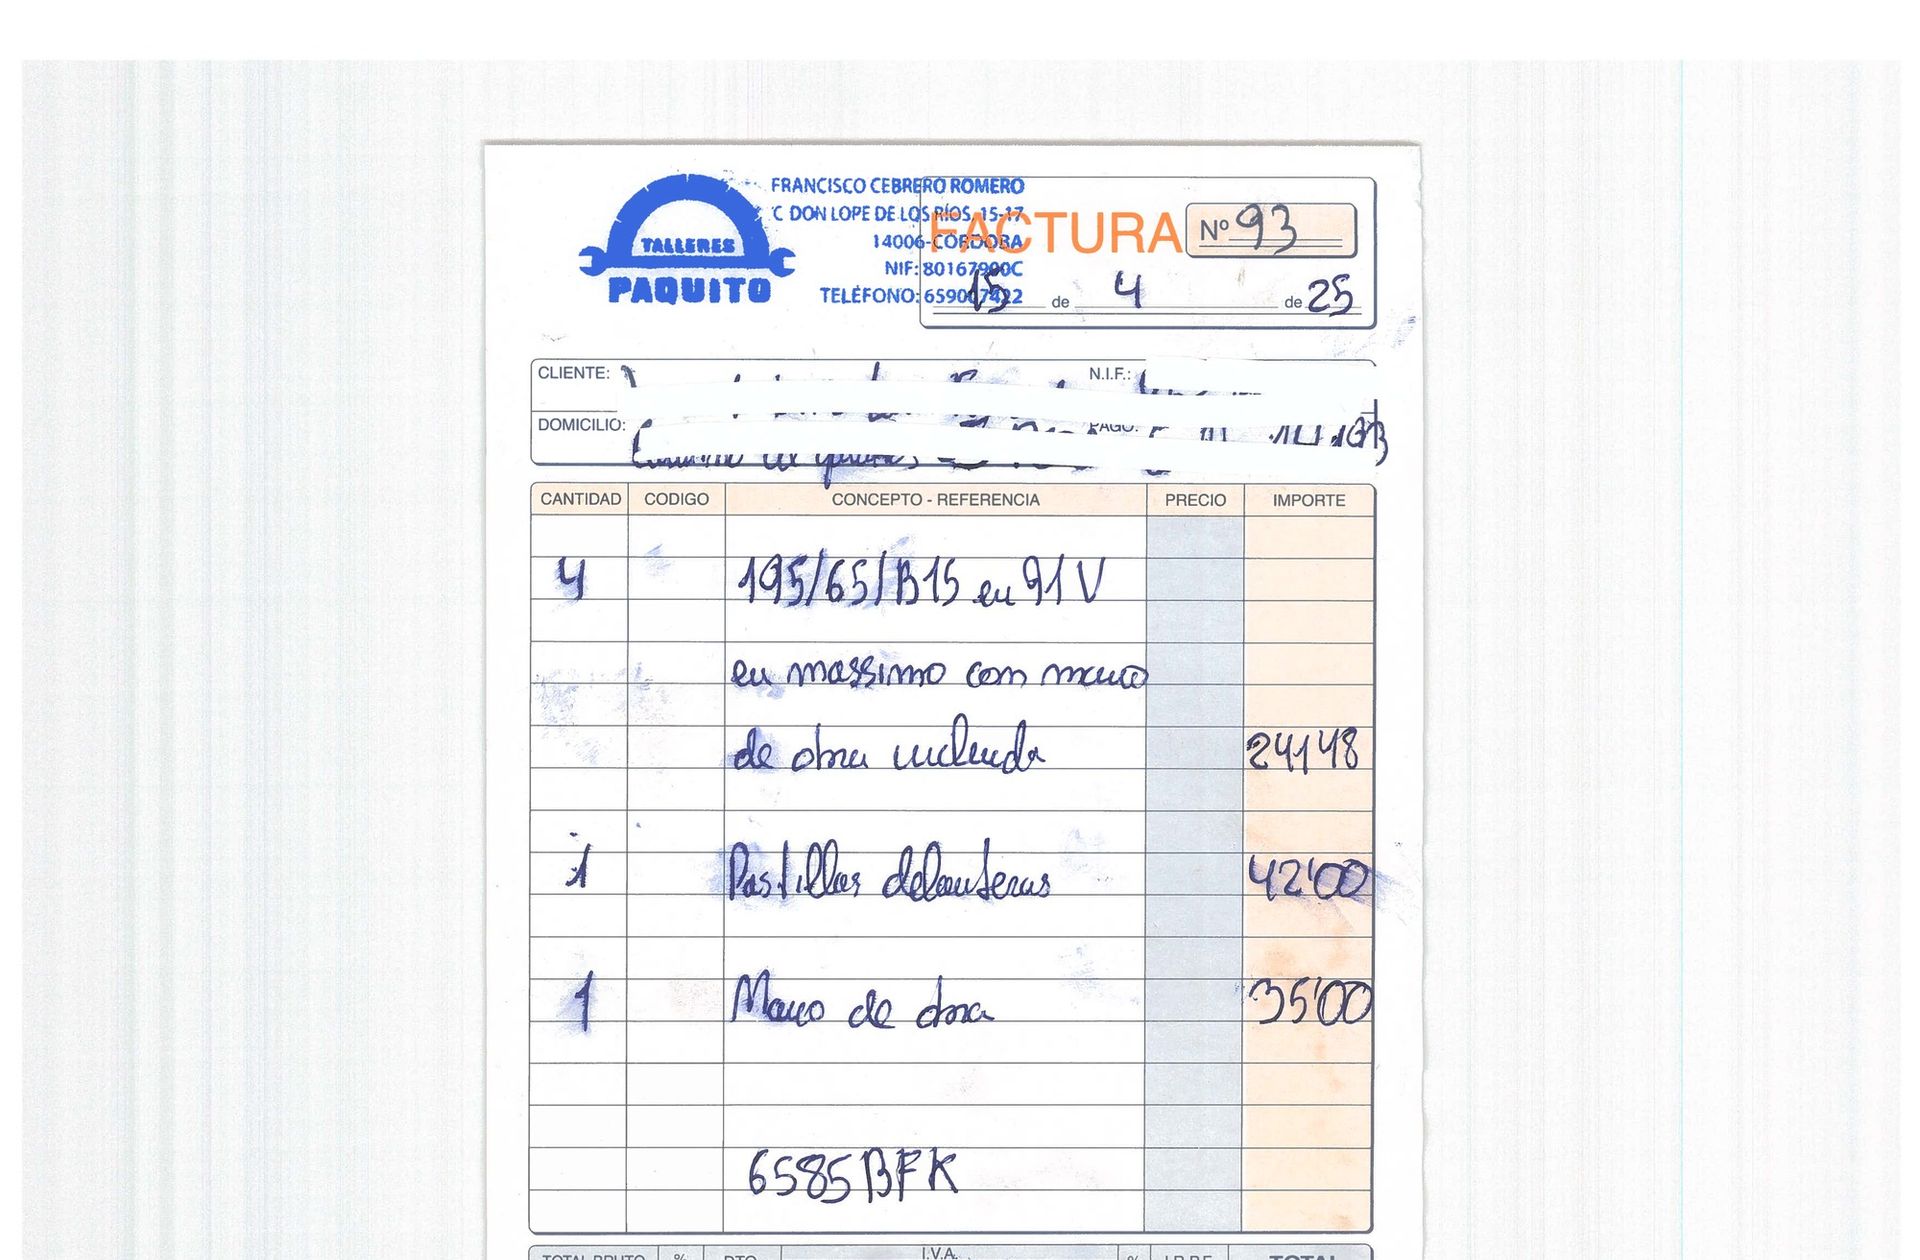 TALLERES
PAQUITO
FRANCISCO CEBRERO ROMERO
C DON LOPE DE LOS RÍOS, 15-17
14006-CÓRDOBA
NIF: 80167900C
TELÉFONO: 659067422
FACTURA Nº 93
15 de 4 de 25
CLIENTE: N.I.F.:
DOMICILIO: PAGO:
CANTIDAD CODIGO CONCEPTO - REFERENCIA PRECIO IMPORTE
4 195/65/B15 en 91V
en massimo com mano
de obra incluida 241'48
1 Pastillas delanteras 42'00
1 Mano de obra 35'00
6585BFK
TOTAL BRUTO % DTO. I.V.A. % I.R.P.F. TOTAL